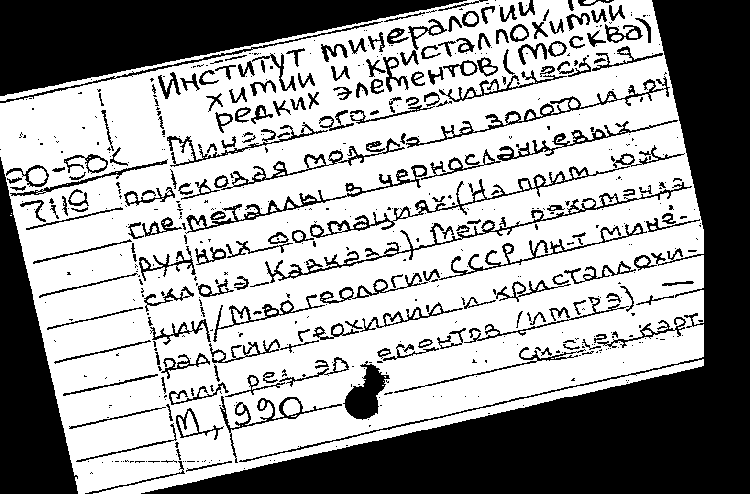 Институт минералогии, гео-
химии и кристаллохимии
редких элементов (Москва)
Минералого-геохимическая
90-50к
7119
поисковая модель на золото и дру
гие металлы в черносланцевых
рудных формациях: (На прим. юж.
склона Кавказа): Метод. рекоменда
ции / М-во геологии СССР, Ин-т мине-
ралогии, геохимии и кристаллохи-
мии ред. эл ементов (ИМГРЭ), —
М., 1990.
см. след. карт.